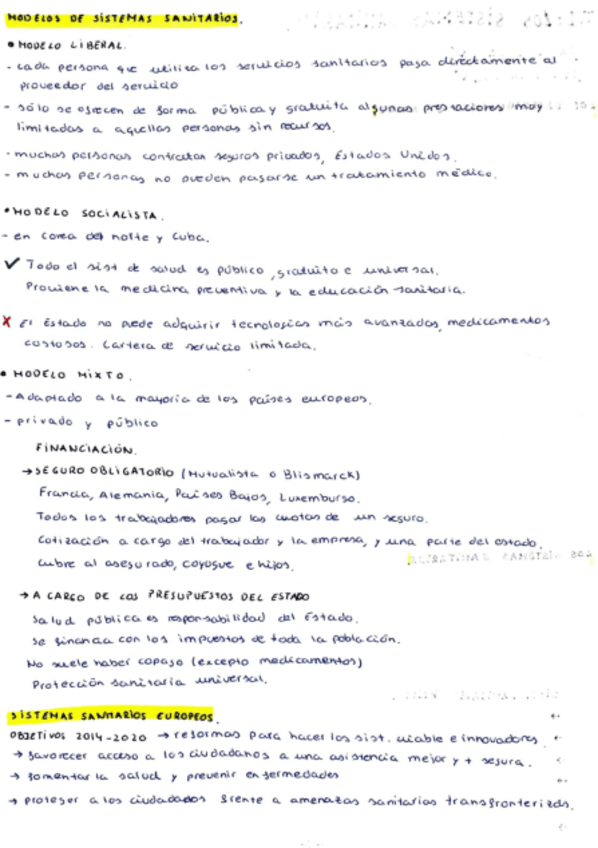 MODELOS DE SISTEMAS SANITARIOS.
• MODELO LIBERAL.
- cada persona que utiliza los servicios sanitarios paga directamente al
proveedor del servicio
- sólo se ofrecen de forma pública y gratuita algunas prestaciones muy
limitadas a aquellas personas sin recursos.
- muchas personas contratan seguros privados, Estados Unidos.
- muchas personas no pueden pagarse un tratamiento médico.
• MODELO SOCIALISTA.
- en Corea del norte y Cuba.
✓ Todo el sist de salud es público, gratuito e universal.
Proviene la medicina preventiva y la educación sanitaria.
X El Estado no puede adquirir tecnologías más avanzadas, medicamentos
costosos. Cartera de servicio limitada.
• MODELO MIXTO.
- Adaptado a la mayoría de los países europeos.
- privado y público
FINANCIACIÓN.
→ SEGURO OBLIGATORIO (Mutualista o Blismarck)
Francia, Alemania, Países Bajos, Luxemburgo.
Todos los trabajadores pagar las cuotas de un seguro.
Cotización a cargo del trabajador y la empresa, y una parte del estado.
Cubre al asegurado, coyugue e hijos.
→ A CARGO DE LOS PRESUPUESTOS DEL ESTADO
Salud pública es responsabilidad del Estado.
Se financia con los impuestos de toda la población.
No suele haber copago (excepto medicamentos)
Protección sanitaria universal.
SISTEMAS SANITARIOS EUROPEOS.
OBJETIVOS 2014-2020 → reformas para hacer los sist. viable e innovadores
→ favorecer acceso a los ciudadanos a una asistencia mejor y + segura.
→ fomentar la salud y prevenir enfermedades
→ proteger a los ciudadados frente a amenazas sanitarias transfronterizas.